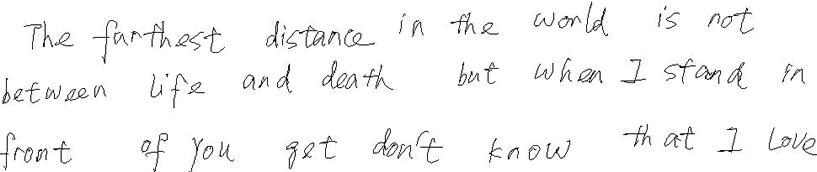 The farthest distance in the world is not
between life and death but when I stand in
front of you get don't know that I Love